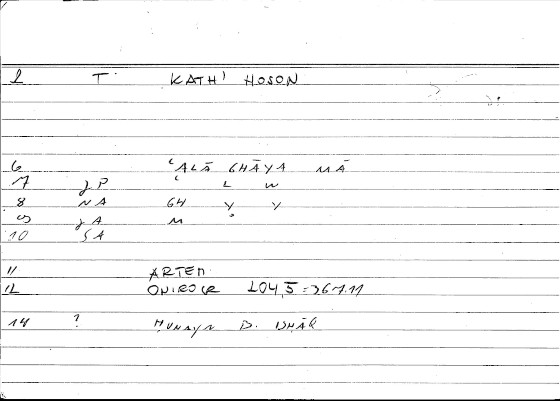 2 T. KATH' HOSON
6 ʿALĀ GHĀYA MĀ
7 JP ʿ L W
8 NA GH Y Y
9 JA M
10 SA
11 ARTEM.
12 ONIROCR 204,5 = 367.11
14 ? ḤUNAYN B. ISḤĀQ